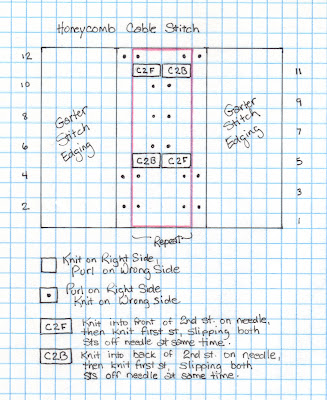 Honeycomb Cable Stitch
12
C2F C2B
11
10
9
8
Garter
Stitch
Edging
Garter
Stitch
Edging
7
6
C2B C2F
5
4
3
2
1
Repeat
Knit on Right Side,
Purl on Wrong Side
Purl on Right Side
Knit on Wrong Side
C2F Knit into front of 2nd st. on needle,
then knit first st, slipping both
sts off needle at same time.
C2B Knit into back of 2nd st. on needle,
then knit first st, slipping both
sts off needle at same time.